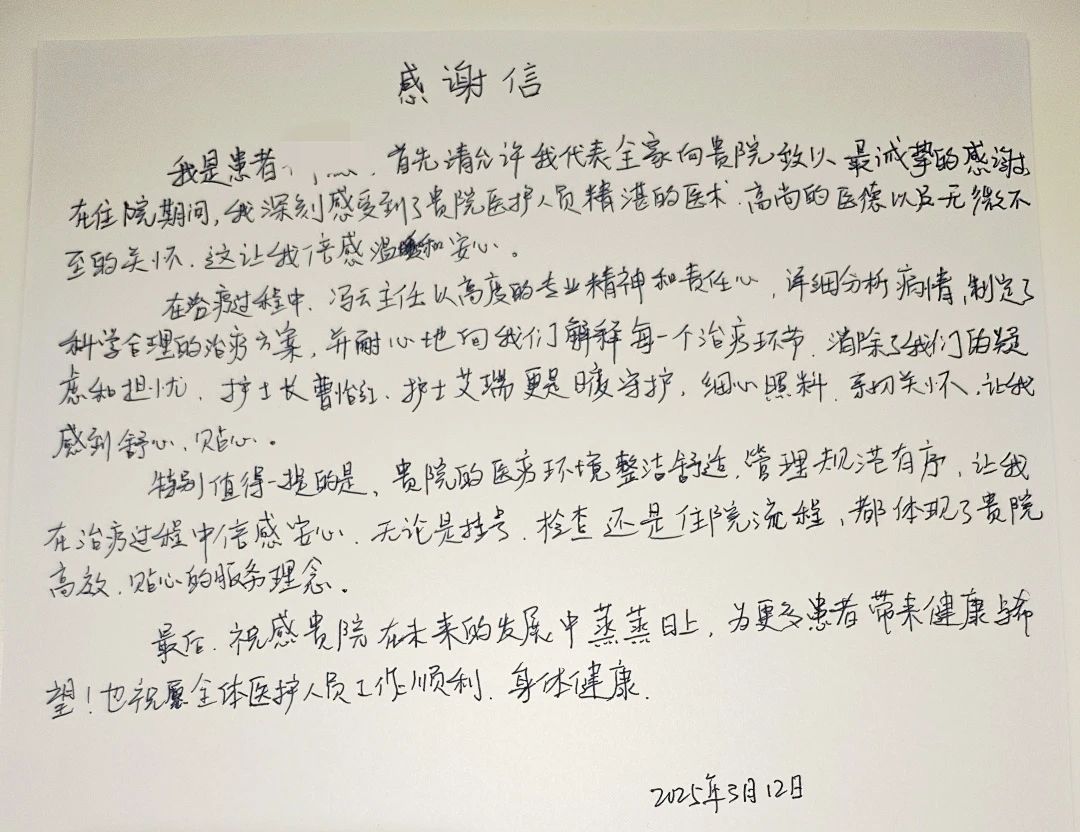 感谢信
我是患者 首先请允许我代表全家向贵院致以最诚挚的感谢。
在住院期间，我深刻感受到了贵院医护人员精湛的医术、高尚的医德以及无微不
至的关怀、这让我倍感温暖和安心。
在治疗过程中、冯云主任以高度的专业精神和责任心，详细分析病情，制定了
科学合理的治疗方案，并耐心地向我们解释每一个治疗环节、消除了我们的疑
虑和担忧、护士长曹怡红、护士艾瑞更是日夜守护，细心照料、亲切关怀、让我
感到舒心、贴心。
特别值得一提的是、贵院的医疗环境整洁舒适，管理规范有序，让我
在治疗过程中倍感安心、无论是挂号、检查还是住院流程，都体现了贵院
高效、贴心的服务理念。
最后、祝感贵院在未来的发展中蒸蒸日上，为更多患者带来健康与希
望！也祝愿全体医护人员工作顺利、身体健康.
2025年3月12日